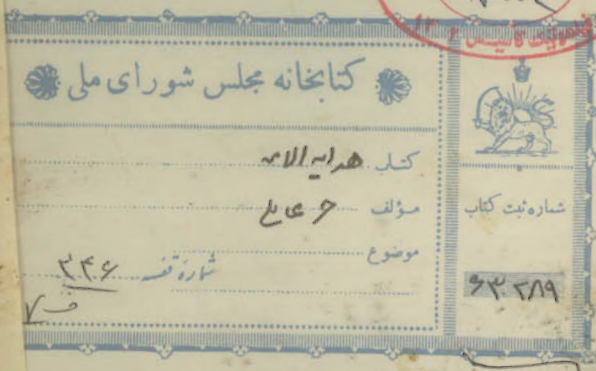 کتابخانه مجلس شورای ملی
کتاب هدایه الامه
مؤلف حر عاملی
موضوع
شماره قفسه ۳۴۶
شماره ثبت کتاب
۶۳۲۸۹